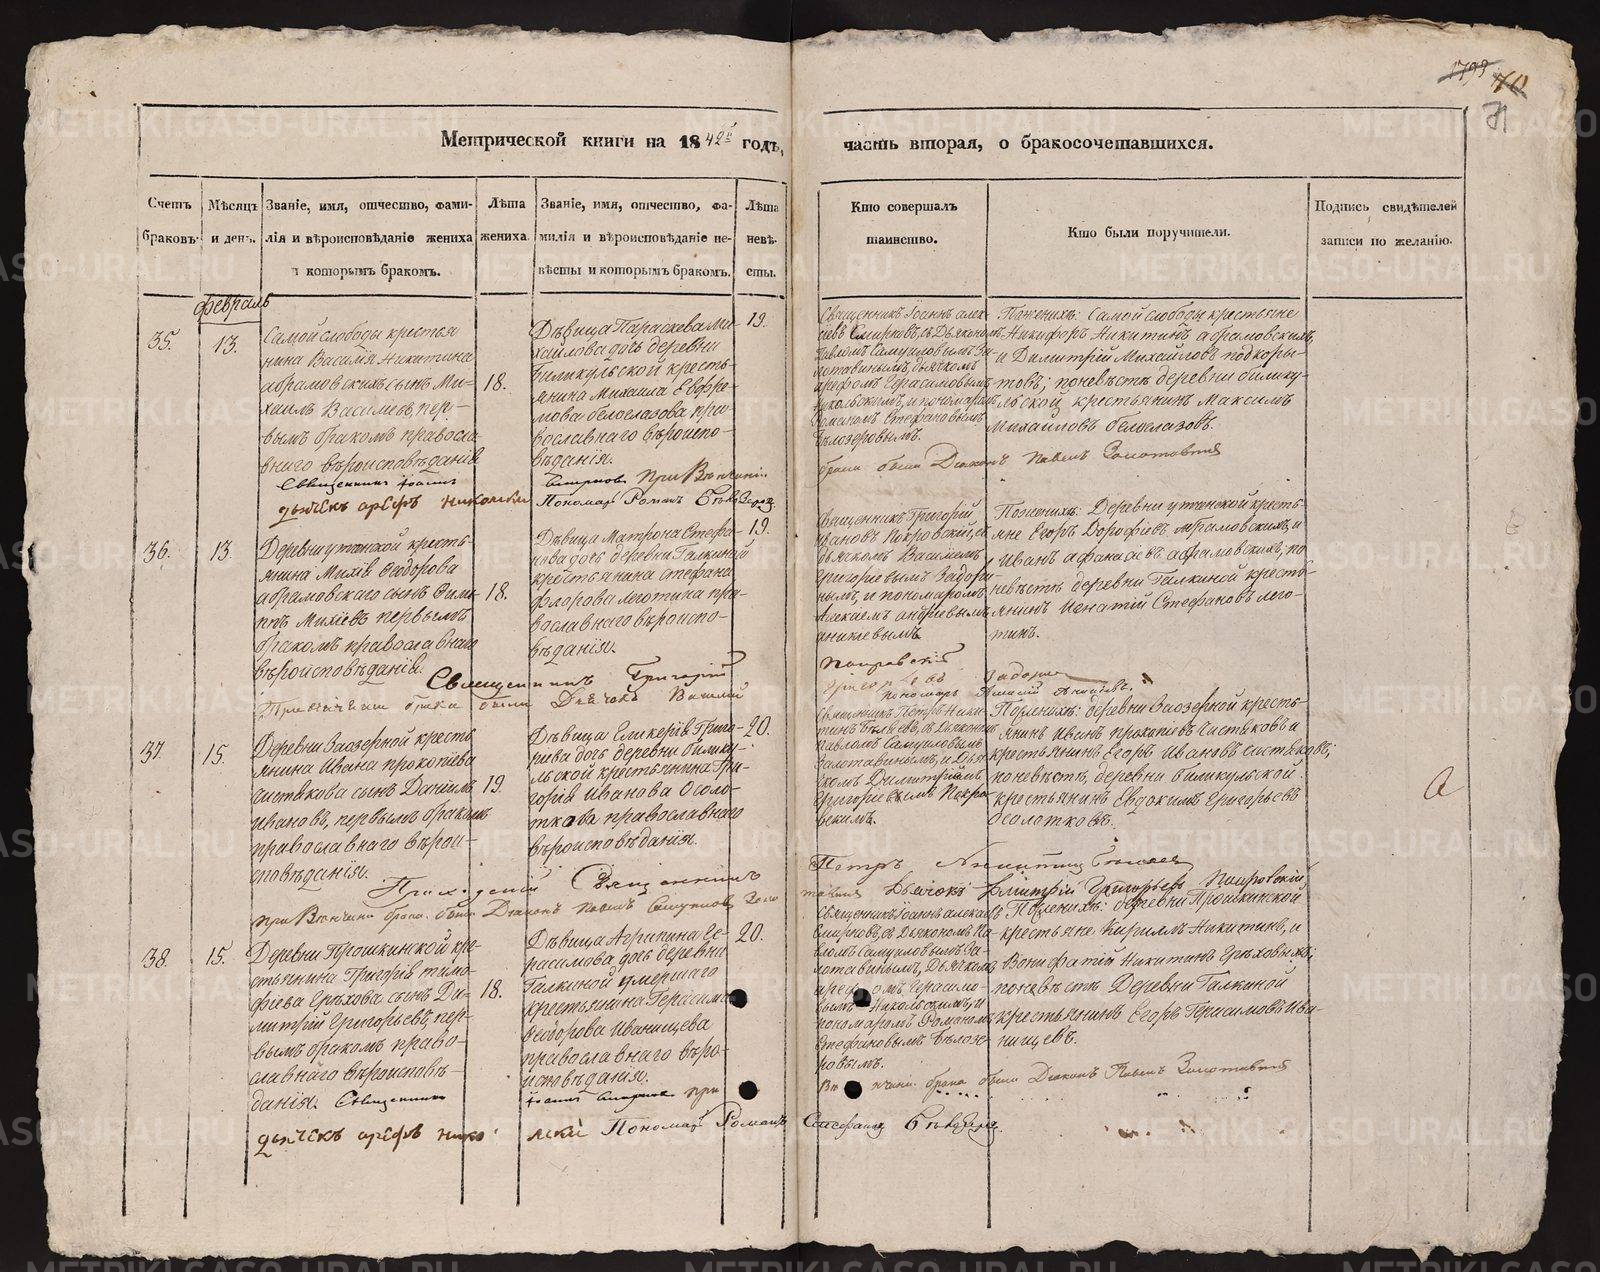 1799 70
71
Метрической книги на 1842й годъ,
часть вторая, о бракосочетавшихся.
Счетъ браковъ.
Мѣсяцъ и день.
Званіе, имя, отчество, фами-
лія и вѣроисповѣданіе жениха
и которымъ бракомъ.
Лѣта жениха.
Званіе, имя, отчество, фа-
милія и вѣроисповѣданіе не-
вѣсты и которымъ бракомъ.
Лѣта невѣ-
сты.
Кто совершалъ
таинство.
Кто были поручители.
Подпись свидѣтелей
записи по желанію.
февраль
35.
13.
Самой слободы крестья
нина Василія Никитина
абрамовскихъ сынъ Ми-
хаилъ Васильевъ, пер-
вымъ бракомъ правосла
внаго вѣроисповѣданія
18.
Дѣвица Параскева Ми-
хаилова дочь деревни
биликульской кресть-
янина Михаила Евфре-
мова белоглазова пра
вославнаго вѣроиспо-
вѣданія.
19.
Священникъ Іоаннъ алек
сіевъ Смирновъ, съ Дьякономъ
Павломъ Самуиловымъ Зо-
лотавинымъ, дьячкомъ
арефомъ Герасимовымъ
Никольскимъ, и пономаремъ
Романомъ Стефановымъ
Бѣлозеровымъ.
По женихѣ: Самой слободы крестьяне
Никифоръ Никитинъ абрамовскихъ,
и Димитрій Михайловъ подкоры-
товъ; по невѣстѣ деревни билику-
льской крестьянинъ Максимъ
Михаиловъ белоглазовъ.
Священникъ Іоаннъ Смирновъ При Вѣнчаніи
брака были Діаконъ Павелъ Золотавинъ
дьячекъ арефъ никольски Пономарь Романъ Бѣлозеров
36.
13.
Деревни утятской кресть
янина Михія Федорова
абрамовскаго сынъ Фили-
пъ Михіевъ первымъ
бракомъ православнаго
вѣроисповѣданія.
18.
Дѣвица Матрона Стефа-
нова дочь деревни Галкиной
крестьянина Стефана
флорова леготина пра-
вославнаго вѣроиспо-
вѣданія.
19.
Священникъ Григорій
ивановъ Покровскій, съ
дьячкомъ Василіемъ
Григорьевымъ Задори-
нымъ, и пономаремъ
Алексіемъ андреевымъ
аникіевымъ
По женихѣ: Деревни утятской кресть-
яне Егоръ Дорофіевъ абрамовскихъ, и
Иванъ афанасіевъ абрамовскихъ, по
невѣстѣ деревни Галкиной кресть-
янинъ Игнатій Стефановъ лего-
тинъ.
Священникъ Григорій Покровскій
При вѣнчаніи брака были Дьячокъ Василій
пономарь
37.
15.
Деревни Заозерной кресть
янина Ивана прокопіева
чистякова сынъ Даніилъ
Ивановъ, первымъ бракомъ
православнаго вѣрои-
сповѣданія.
19.
Дѣвица Гликерія Григо-
рьева дочь деревни билику-
льской крестьянина Гри-
горія Иванова Осоло-
ткова православнаго
вѣроисповѣданія.
20.
Священникъ Петръ Ники-
тинъ Бѣляевъ, съ Дьякономъ
Павломъ Самуиловымъ
Золотавинымъ, и Дья
чкомъ Димитріемъ
Григорьевымъ Покро-
вскимъ.
По женихѣ: деревни Заозерной кресть-
янинъ Иванъ прокопіевъ чистяковъ и
крестьянинъ Егоръ Ивановъ чистяковъ;
по невѣстѣ, деревни биликульской
крестьянинъ Евдокимъ Григорьевъ
Осолотковъ.
Приходскій Священникъ Петръ Никитинъ Бѣляевъ
при Вѣнчаніи брака были Діаконъ Павелъ Самуиловъ Золо
тавинъ Дьячокъ Димитрій Григорьевъ Покровскій
38.
15.
Деревни Прошкинской кре-
стьянина Григорія тимо-
фіева Грѣхова сынъ Ди-
митрій Григорьевъ, пер-
вымъ бракомъ право-
славнаго вѣроисповѣ-
данія.
18.
Дѣвица Агрипина Ге-
расимова дочь деревни
Галкиной умершаго
крестьянина Герасима
Федорова Иванищева
православнаго вѣро-
исповѣданія.
20.
Священникъ Іоаннъ алексіевъ
Смирновъ, съ Дьякономъ Па-
вломъ Самуиловымъ Зо-
лотавинымъ, Дьячкомъ
арефомъ Герасимо-
вымъ Никольскимъ, и
пономаремъ Романомъ
Стефановымъ Бѣлозе-
ровымъ.
По женихѣ: деревни Прошкинской
крестьяне Кириллъ Никитинъ, и
Вонифатій Никитинъ Грѣховыхъ;
по невѣстѣ Деревни Галкиной
крестьянинъ Егоръ Герасимовъ Ива-
нищевъ.
Священникъ Іоаннъ Смирновъ при
Вѣнчаніи брака были Діаконъ Павелъ Золотавинъ
дьячекъ арефъ никольски Пономарь Романъ Стефановъ Бѣлозеров